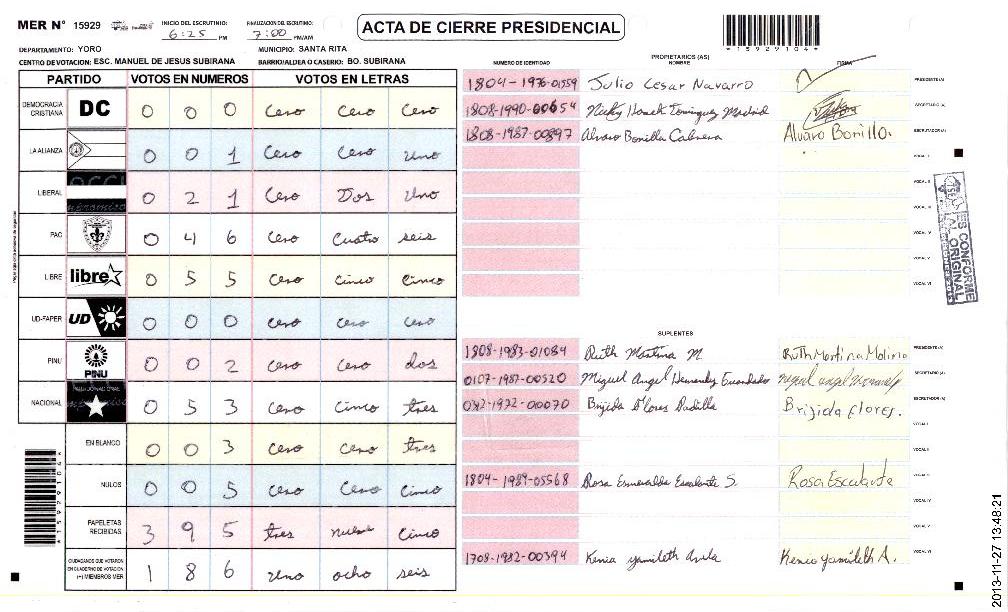 MER N° 15929 INICIO DEL ESCRUTINIO: 6:25 PM FINALIZACION DEL ESCRUTINIO: 7:00 PM/AM
ACTA DE CIERRE PRESIDENCIAL
*15929104*
DEPARTAMENTO: YORO MUNICIPIO: SANTA RITA
CENTRO DE VOTACION: ESC. MANUEL DE JESUS SUBIRANA BARRIO/ALDEA O CASERIO: BO. SUBIRANA
PARTIDO VOTOS EN NUMEROS VOTOS EN LETRAS
DEMOCRACIA CRISTIANA DC 0 0 0 Cero Cero Cero
LA ALIANZA 0 0 1 Cero Cero Uno
LIBERAL 0 2 1 Cero Dos Uno
PAC 0 4 6 Cero Cuatro seis
LIBRE libre 0 5 5 Cero Cinco Cinco
UD-FAPER UD 0 0 0 Cero Cero Cero
PINU PINU 0 0 2 Cero Cero dos
NACIONAL 0 5 3 Cero Cinco tres
EN BLANCO 0 0 3 Cero Cero tres
NULOS 0 0 5 Cero Cero Cinco
PAPELETAS RECIBIDAS 3 9 5 tres nueve Cinco
CIUDADANOS QUE VOTARON EN CUADERNO DE VOTACION (+) MIEMBROS MER 1 8 6 Uno ocho seis
PROPIETARIOS (AS)
NUMERO DE IDENTIDAD NOMBRE FIRMA
1804-1976-01559 Julio Cesar Navarro PRESIDENTE (A)
1808-1990-00654 Nicky Dominguez Madrid SECRETARIO (A)
1808-1987-00897 Alvaro Bonilla Cabrera Alvaro Bonilla. ESCRUTADOR (A)
VOCAL I
VOCAL II
VOCAL III
VOCAL IV
VOCAL V
VOCAL VI
ES CONFORME AL ORIGINAL
SUPLENTES
1808-1983-01084 Ruth Martina M Ruth Martina Molina PRESIDENTE (A)
0107-1987-00520 Miguel Angel Hernandez SECRETARIO (A)
1972-00070 Brijida Flores Padilla Brijida Flores. ESCRUTADOR (A)
VOCAL I
VOCAL II
1804-1989-05568 Rosa Esmeralda Escalante S. Rosa Escalante VOCAL III
VOCAL IV
VOCAL V
1708-1982-00394 Kenia yamileth Avila Kenia yamileth A. VOCAL VI
2013-11-27 13:48:21